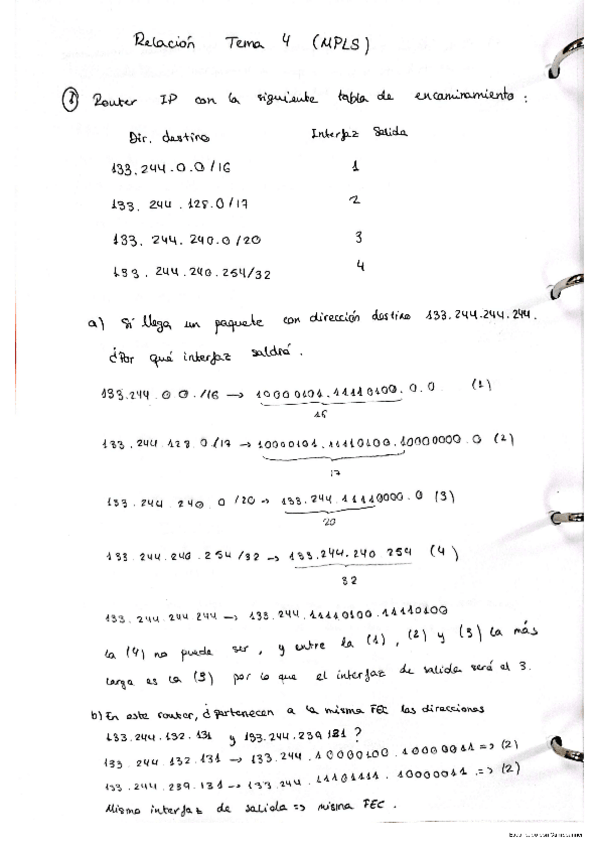 Relación Tema 4 (MPLS)
① Router IP con la siguiente tabla de encaminamiento :
Dir. destino Interfaz Salida
133.244.0.0/16 1
133.244.128.0/17 2
133.244.240.0/20 3
133.244.240.254/32 4
a) Si llega un paquete con dirección destino 133.244.244.244.
¿Por qué interfaz saldrá.
133.244.0.0./16 → 10000101.11110100.0.0 (1)
16
133.244.128.0/17 → 10000101.11110100.10000000.0 (2)
17
133.244.240.0/20 → 133.244.11110000.0 (3)
20
133.244.240.254/32 → 133.244.240 254 (4)
32
133.244.244.244 → 133.244.11110100.11110100
la (4) no puede ser, y entre la (1), (2) y (3) la más
larga es la (3) por lo que el interfaz de salida será el 3.
b) En este router, ¿pertenecen a la misma FEC las direcciones
133.244.132.131 y 133.244.239.131?
133.244.132.131 → 133.244.10000100.10000011 => (2)
133.244.239.131 → 133.244.11101111.10000011 => (2)
Mismo interfaz de salida => misma FEC.